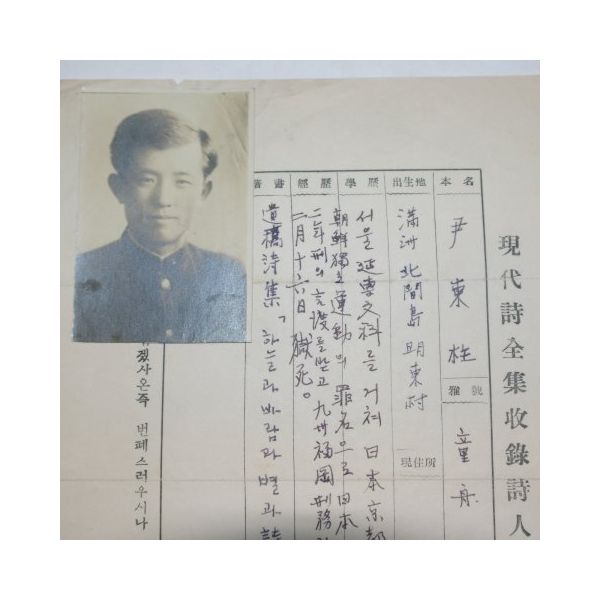 現代詩全集收錄詩人
本名 尹東柱 雅號 童舟
出生地 滿洲 北間島 明東村 現住所
學歷 서울 延專文科를 거쳐 日本 京都
經歷 朝鮮獨立運動의 罪名으로 日本
二年刑의 言渡를 받고 九州 福岡刑務
二月十六日 獄死。
著書 遺稿詩集, 하늘과 바람과 별과 詩
겠사온즉 번폐스러우시나